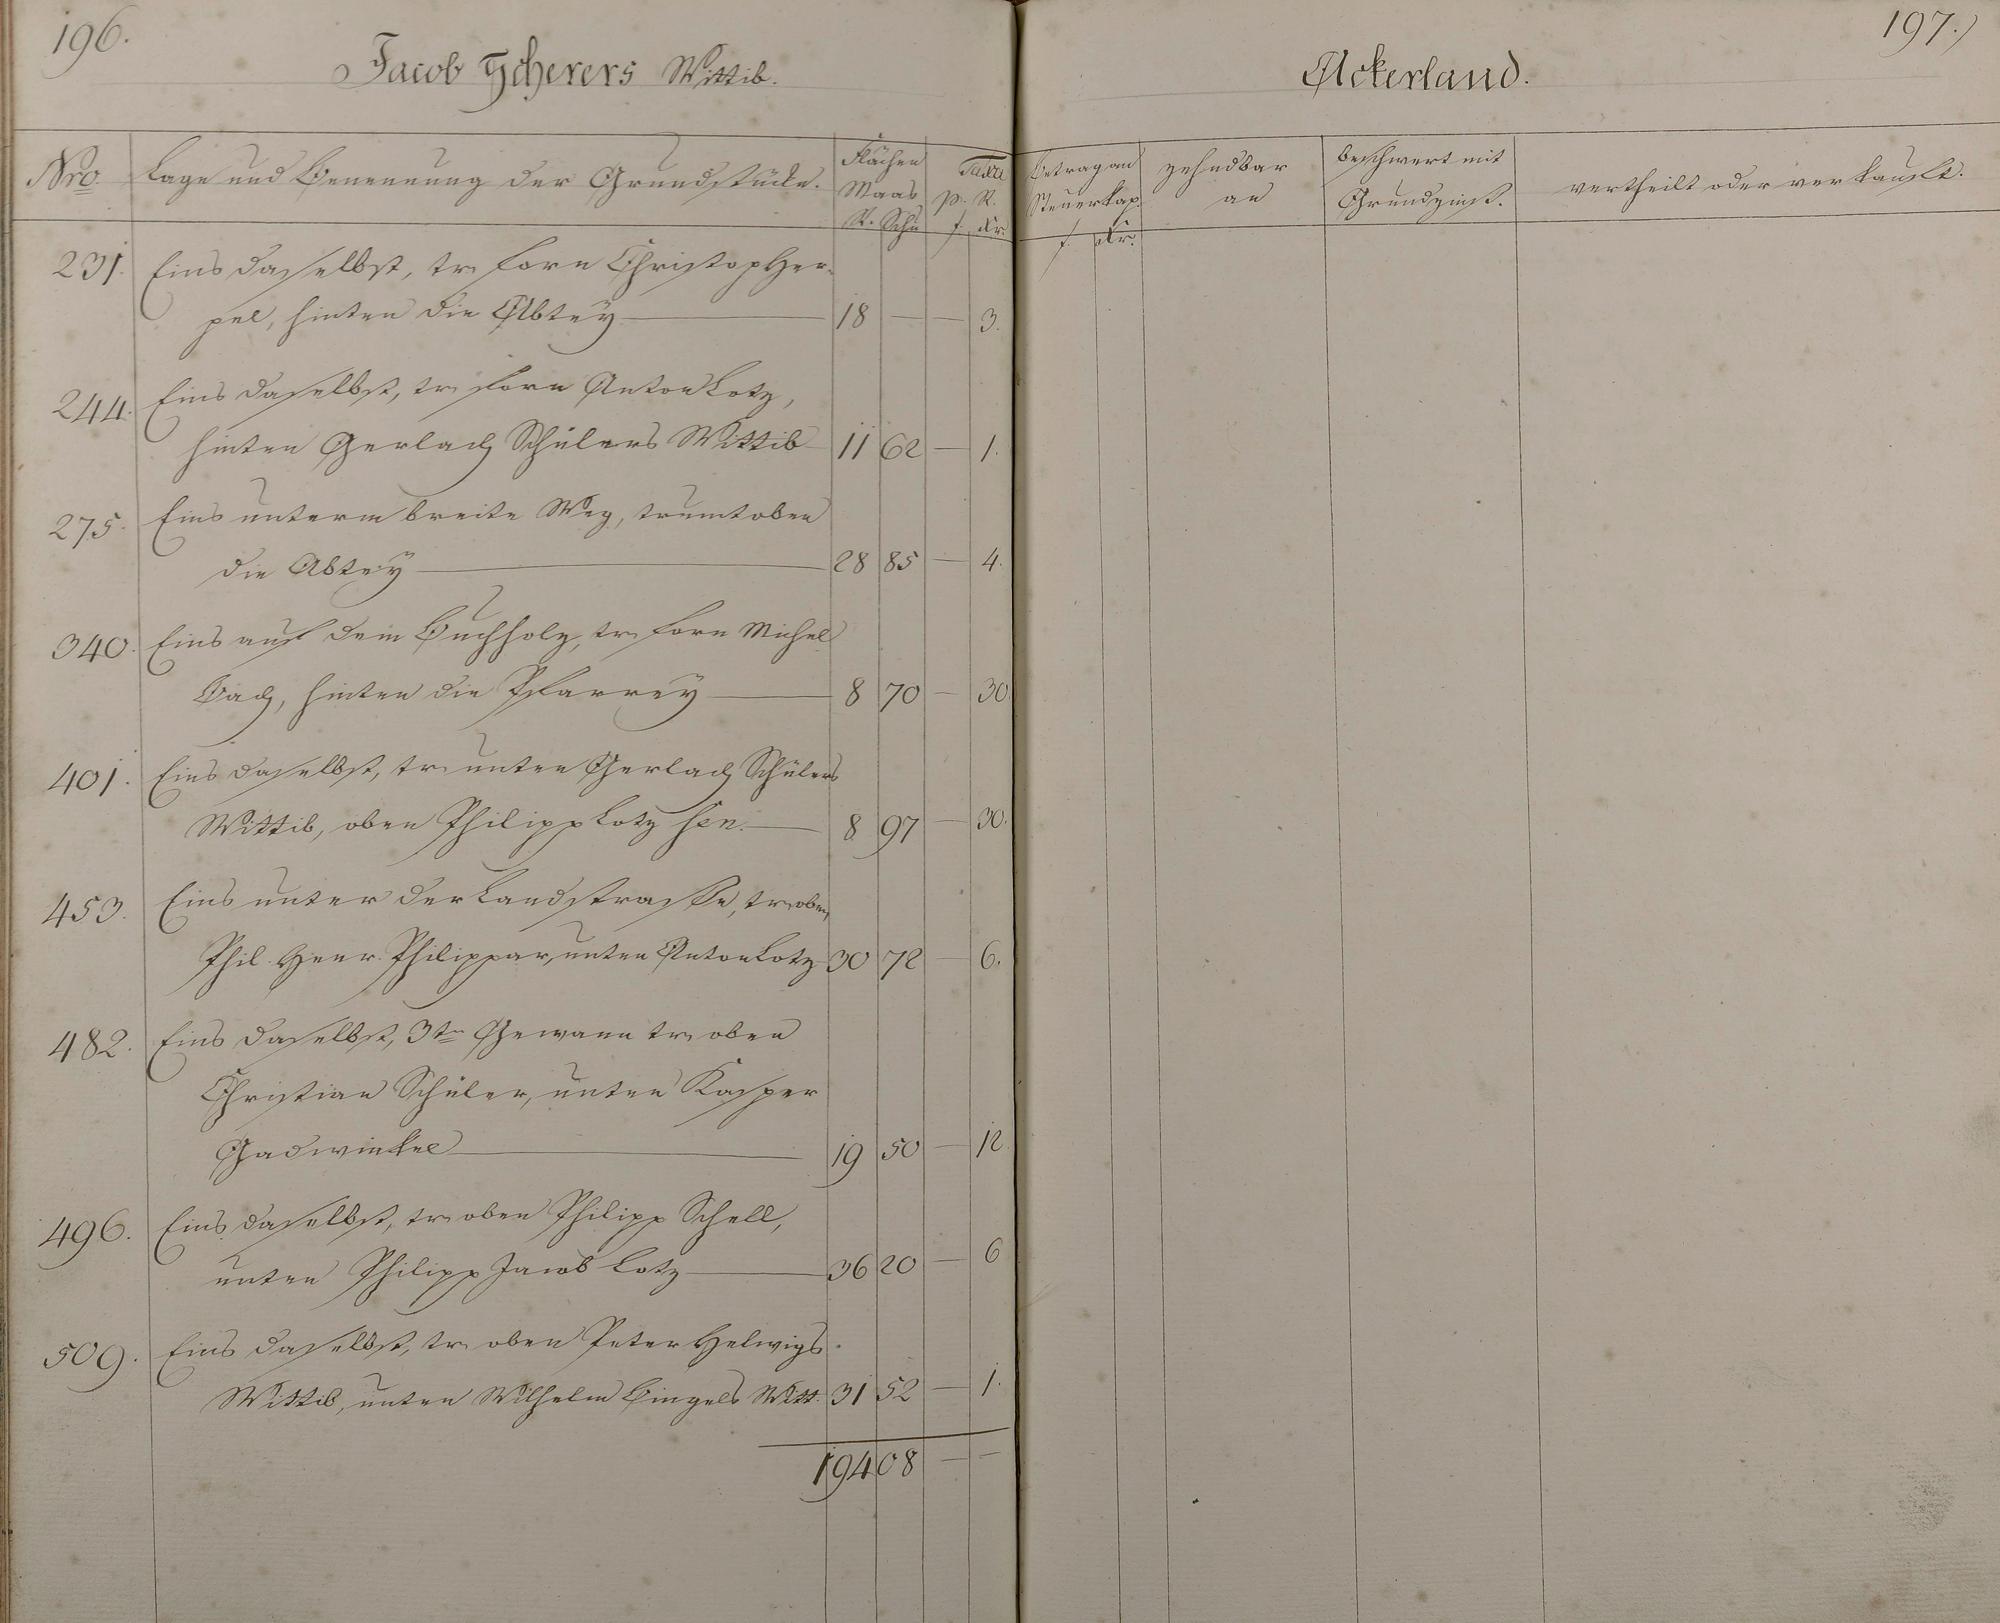 196.
Jacob Scherers Wittib.
Nro. Lage und Benennung der Grundstücke. Flächen Maas R. Schu Taxe p. R. f. Kr.
231. Eins daselbst, tr. forn Christop Her-
pel, hinten die Abtey 18 — — 3.
244. Eins daselbst, tr. forn Anton Lotz,
hinten Gerlach Schülers Wittib 11 62 — 1.
275. Eins unterm breite Weg, trumt oben
die Abtey 28 85 — 4.
340. Eins auf dem Buchholz, tr. forn Michel
Bach, hinten die Pfarrey 8 70 — 30.
401. Eins daselbst, tr. unten Gerlach Schülers
Wittib, oben Philipp Lotz sen. 8 97 — 30.
453. Eins unter der Landstrasse, tr. oben
Phil. Henr. Philippar, unten Anton Lotz 30 72 — 6.
482. Eins daselbst, 3te Gewann tr. oben
Christian Schüler, unten Kasper
Gadwinkel 19 50 — 12
496. Eins daselbst, tr. oben Philipp Schell,
unten Philipp Jacob Lotz 36 20 — 6
509. Eins daselbst, tr. oben Peter Helwigs
Wittib, unten Wilhelm Bingels Witt. 31 52 — 1.
194 08 — —
197.)
Ackerland.
Betrag an Steuerkap. f. Kr. zehndbar an beschwert mit Grundzinß. vertheilt oder verkauft.